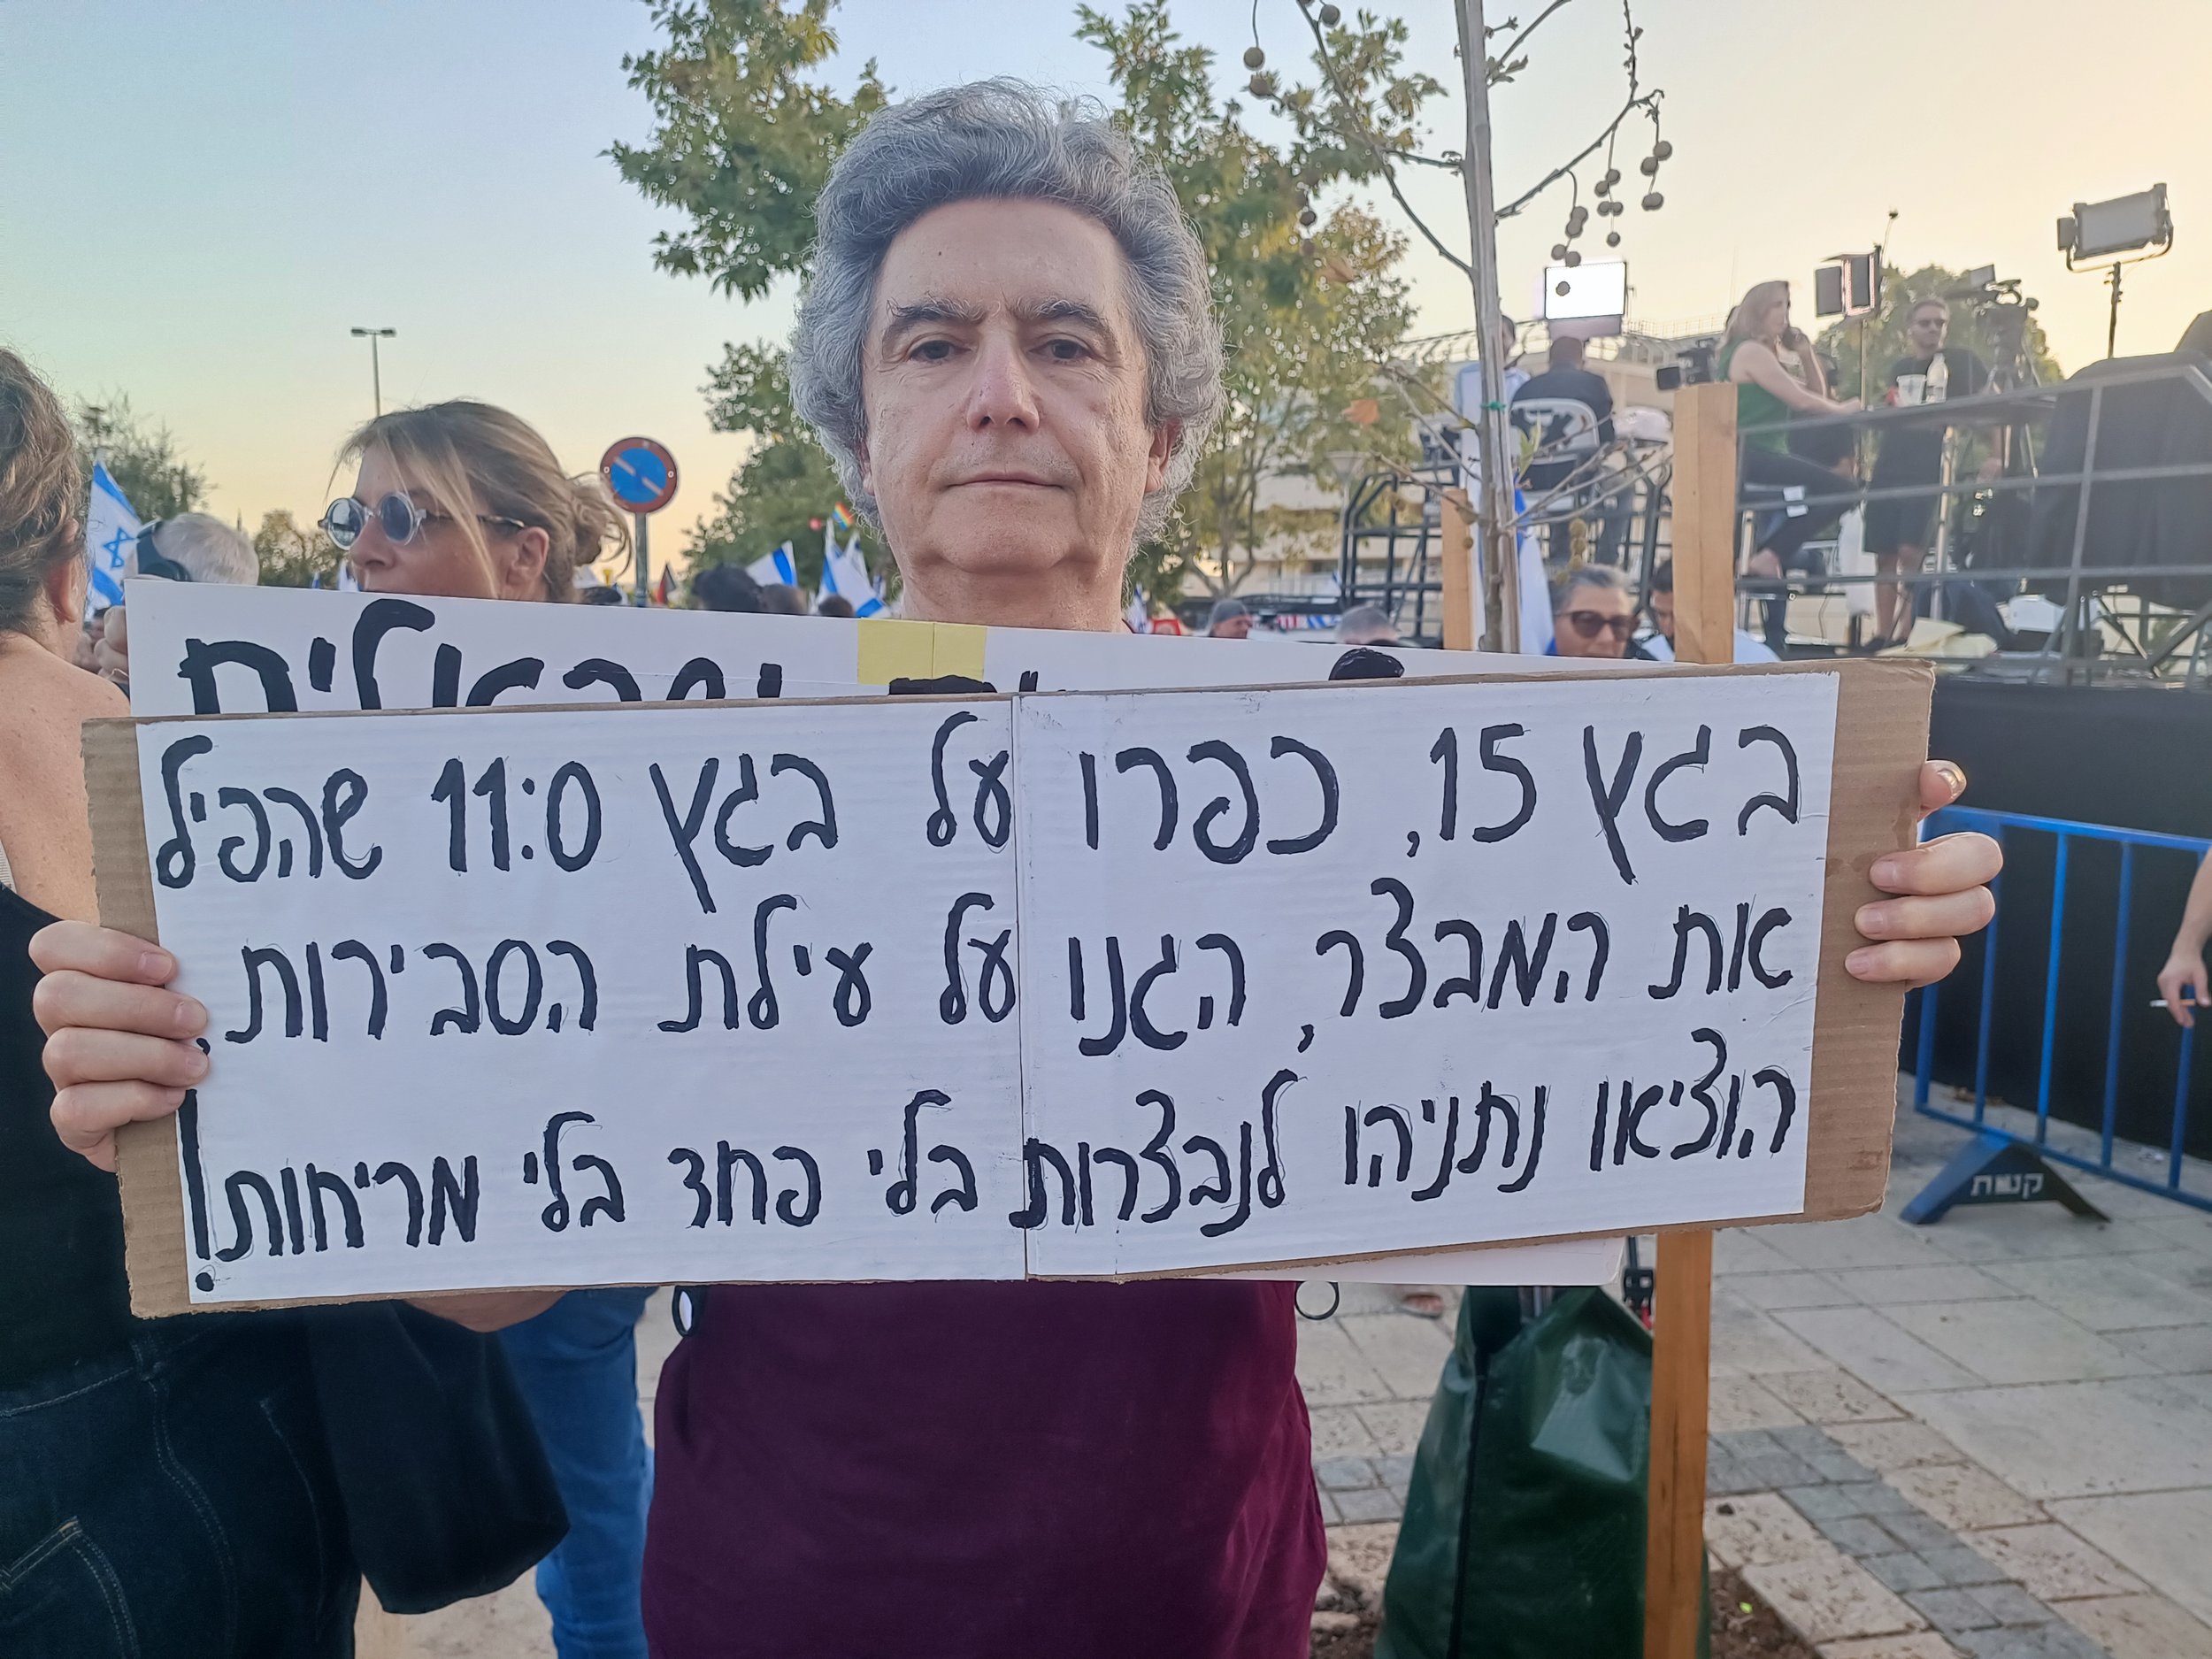 בגץ 15, כפרו על בגץ 11:0 שהפיל
את המבצר, הגנו על עילת הסבירות.
הוציאו נתניהו לנבצרות בלי פחד בלי מריחות!